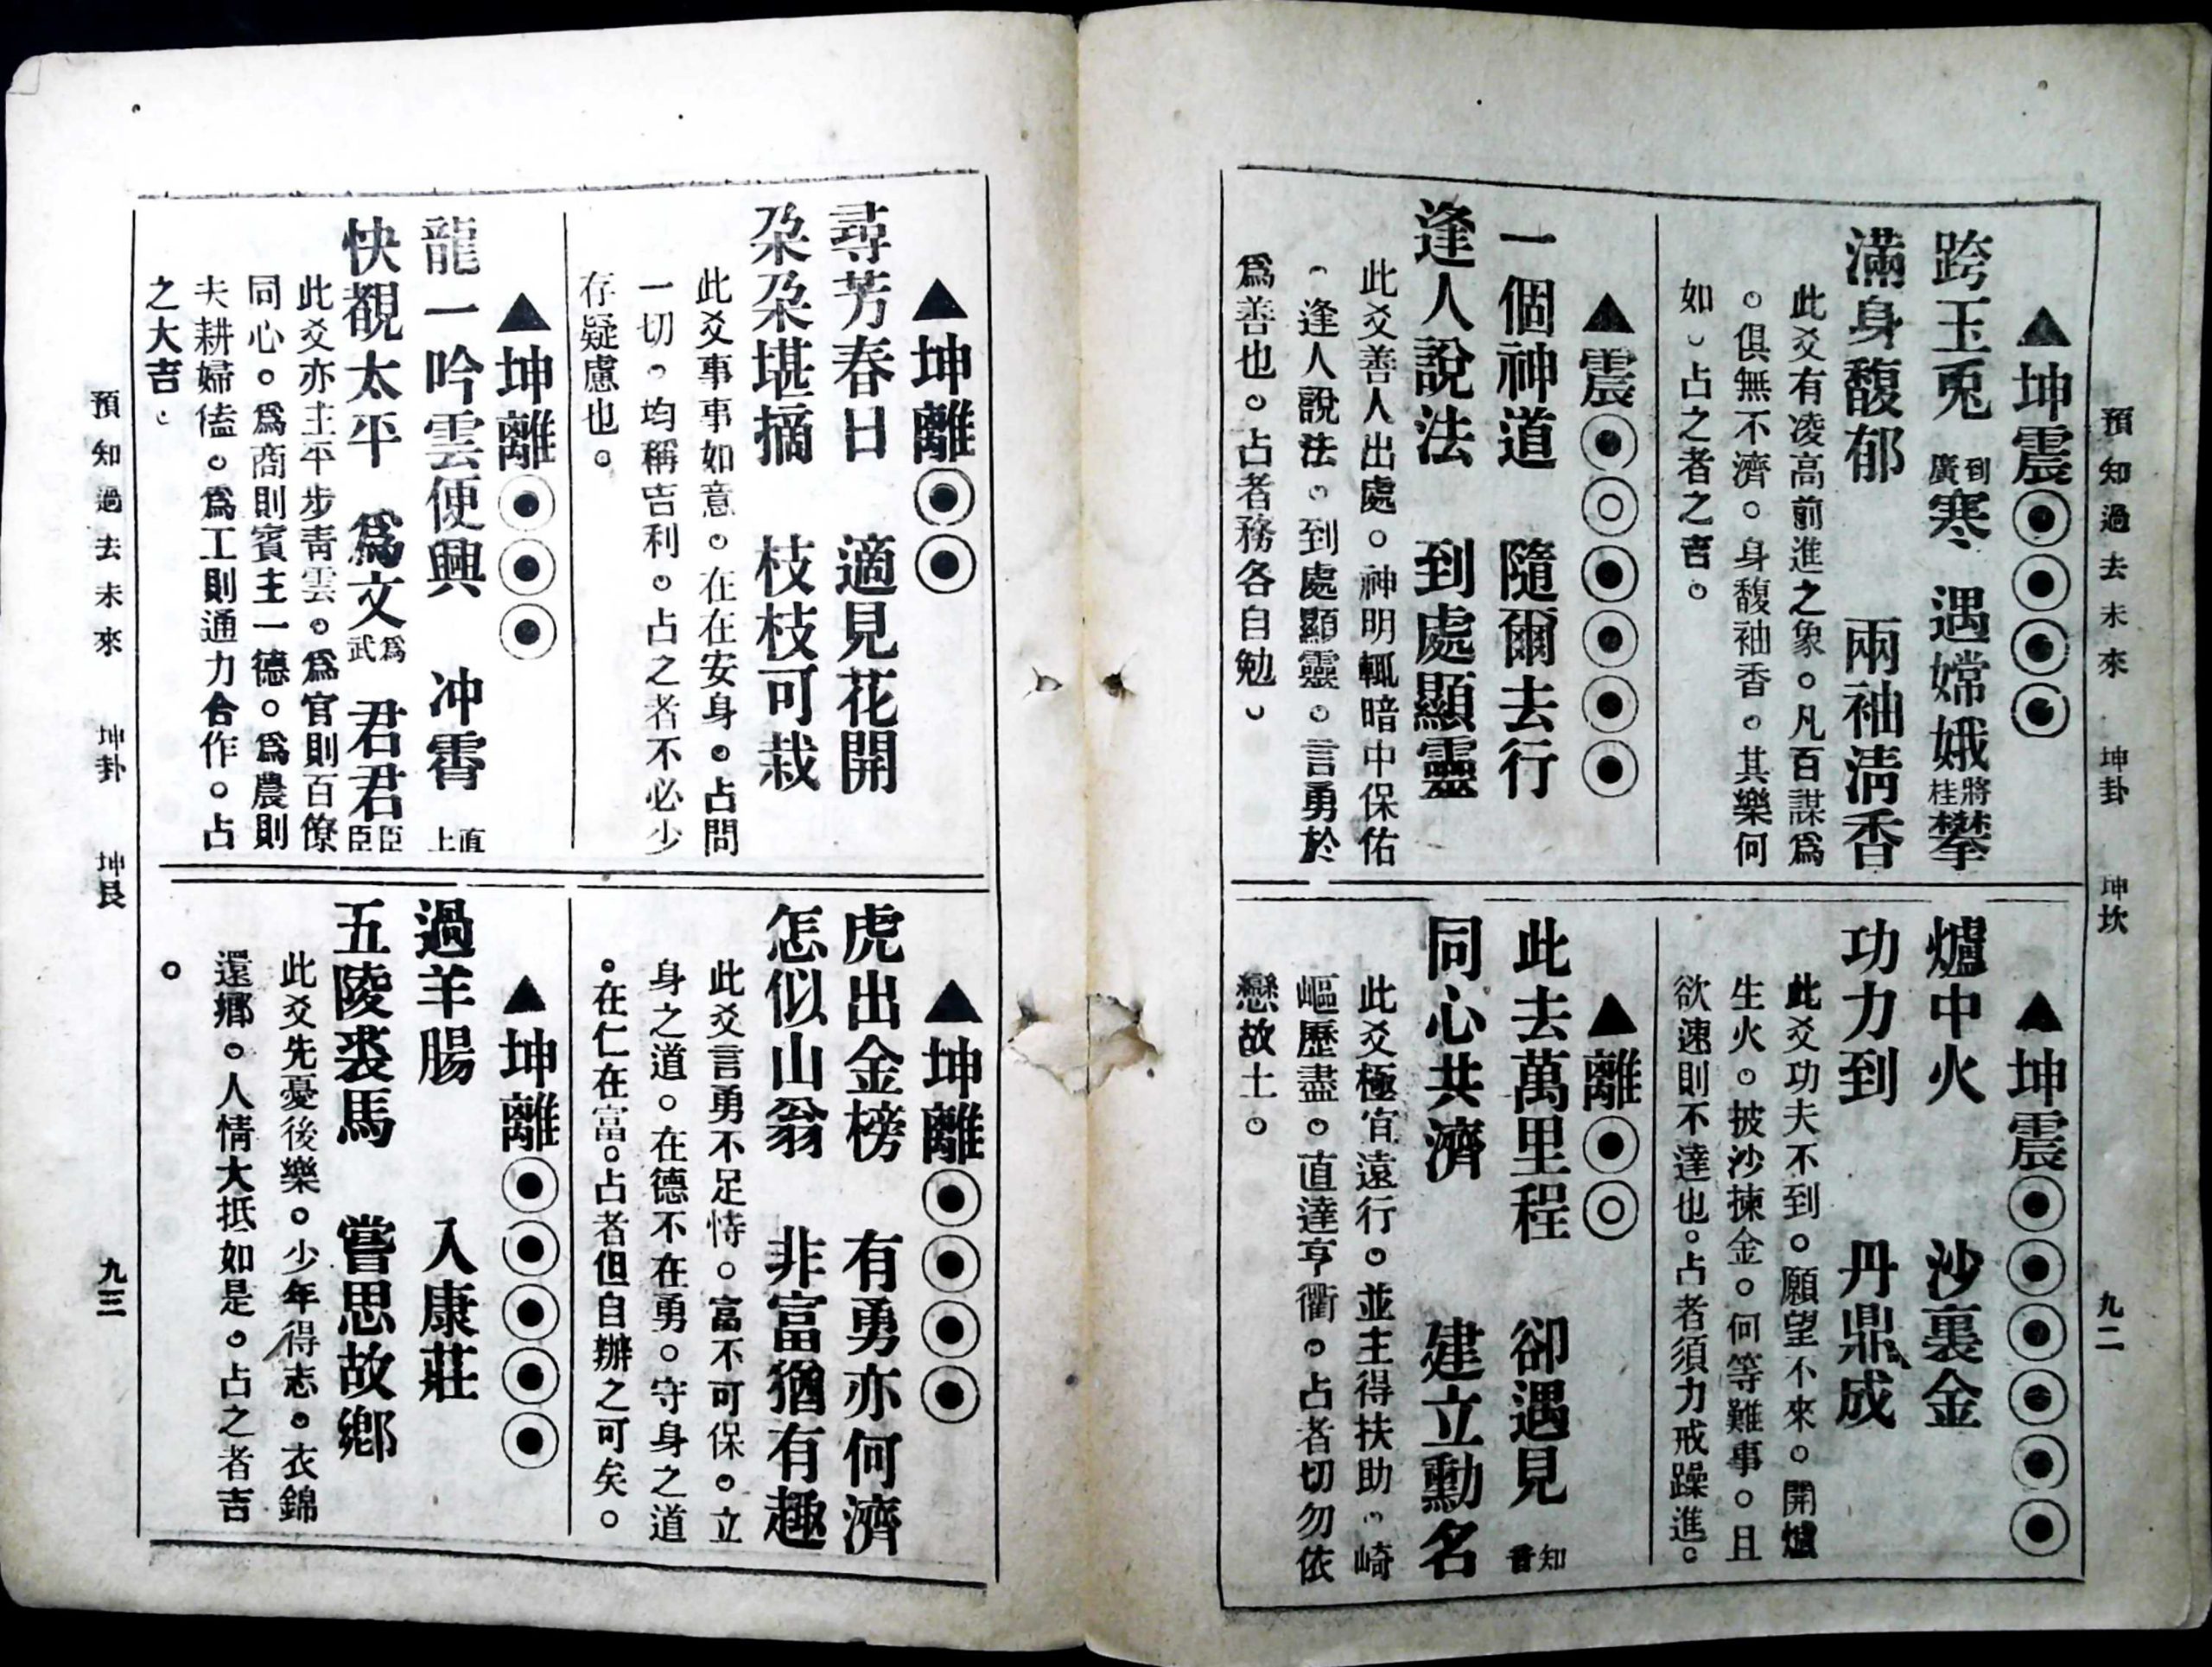 預知過去未來 坤卦 坤坎 九二
▲坤震◉◉◉◉
跨玉兎 到廣寒 遇嫦娥將桂攀
滿身馥郁 兩袖淸香
此爻有凌高前進之象。凡百謀爲
。俱無不濟。身馥袖香。其樂何
如。占之者之吉。
▲震◉◎◉◉◉◉
一個神道 隨爾去行
逢人說法 到處顯靈
此爻善人出處。神明輒暗中保佑
。逢人說法。到處顯靈。言勇於
爲善也。占者務各自勉。
▲坤震◉◉◉◉◉◉
爐中火 沙裏金
功力到 丹鼎成
此爻功夫不到。願望不來。開爐
生火。披沙揀金。何等難事。且
欲速則不達也。占者須力戒躁進。
▲離◉◎
此去萬里程 卻遇見知音
同心共濟 建立勳名
此爻極宜遠行。並主得扶助。崎
嶇歷盡。直達亨衢。占者切勿依
戀故土。
▲坤離◉◉
尋芳春日 適見花開
朶朶堪摘 枝枝可栽
此爻事事如意。在在安身。占問
一切。均稱吉利。占之者不必少
存疑慮也。
▲坤離◉◉◉
龍一吟雲便興 冲霄直上
快覩太平 爲文爲武 君君臣臣
此爻亦主平步靑雲。爲官則百僚
同心。爲商則賓主一德。爲農則
夫耕婦饁。爲工則通力合作。占
之大吉。
▲坤離◉◉◉◉
虎出金榜 有勇亦何濟
怎似山翁 非富猶有趣
此爻言勇不足恃。富不可保。立
身之道。在德不在勇。守身之道
。在仁在富。占者但自辦之可矣。
▲坤離◉◉◉◉◉
過羊腸 入康莊
五陵裘馬 嘗思故鄉
此爻先憂後樂。少年得志。衣錦
還鄉。人情大抵如是。占之者吉
。
預知過去未來 坤卦 坤艮 九三